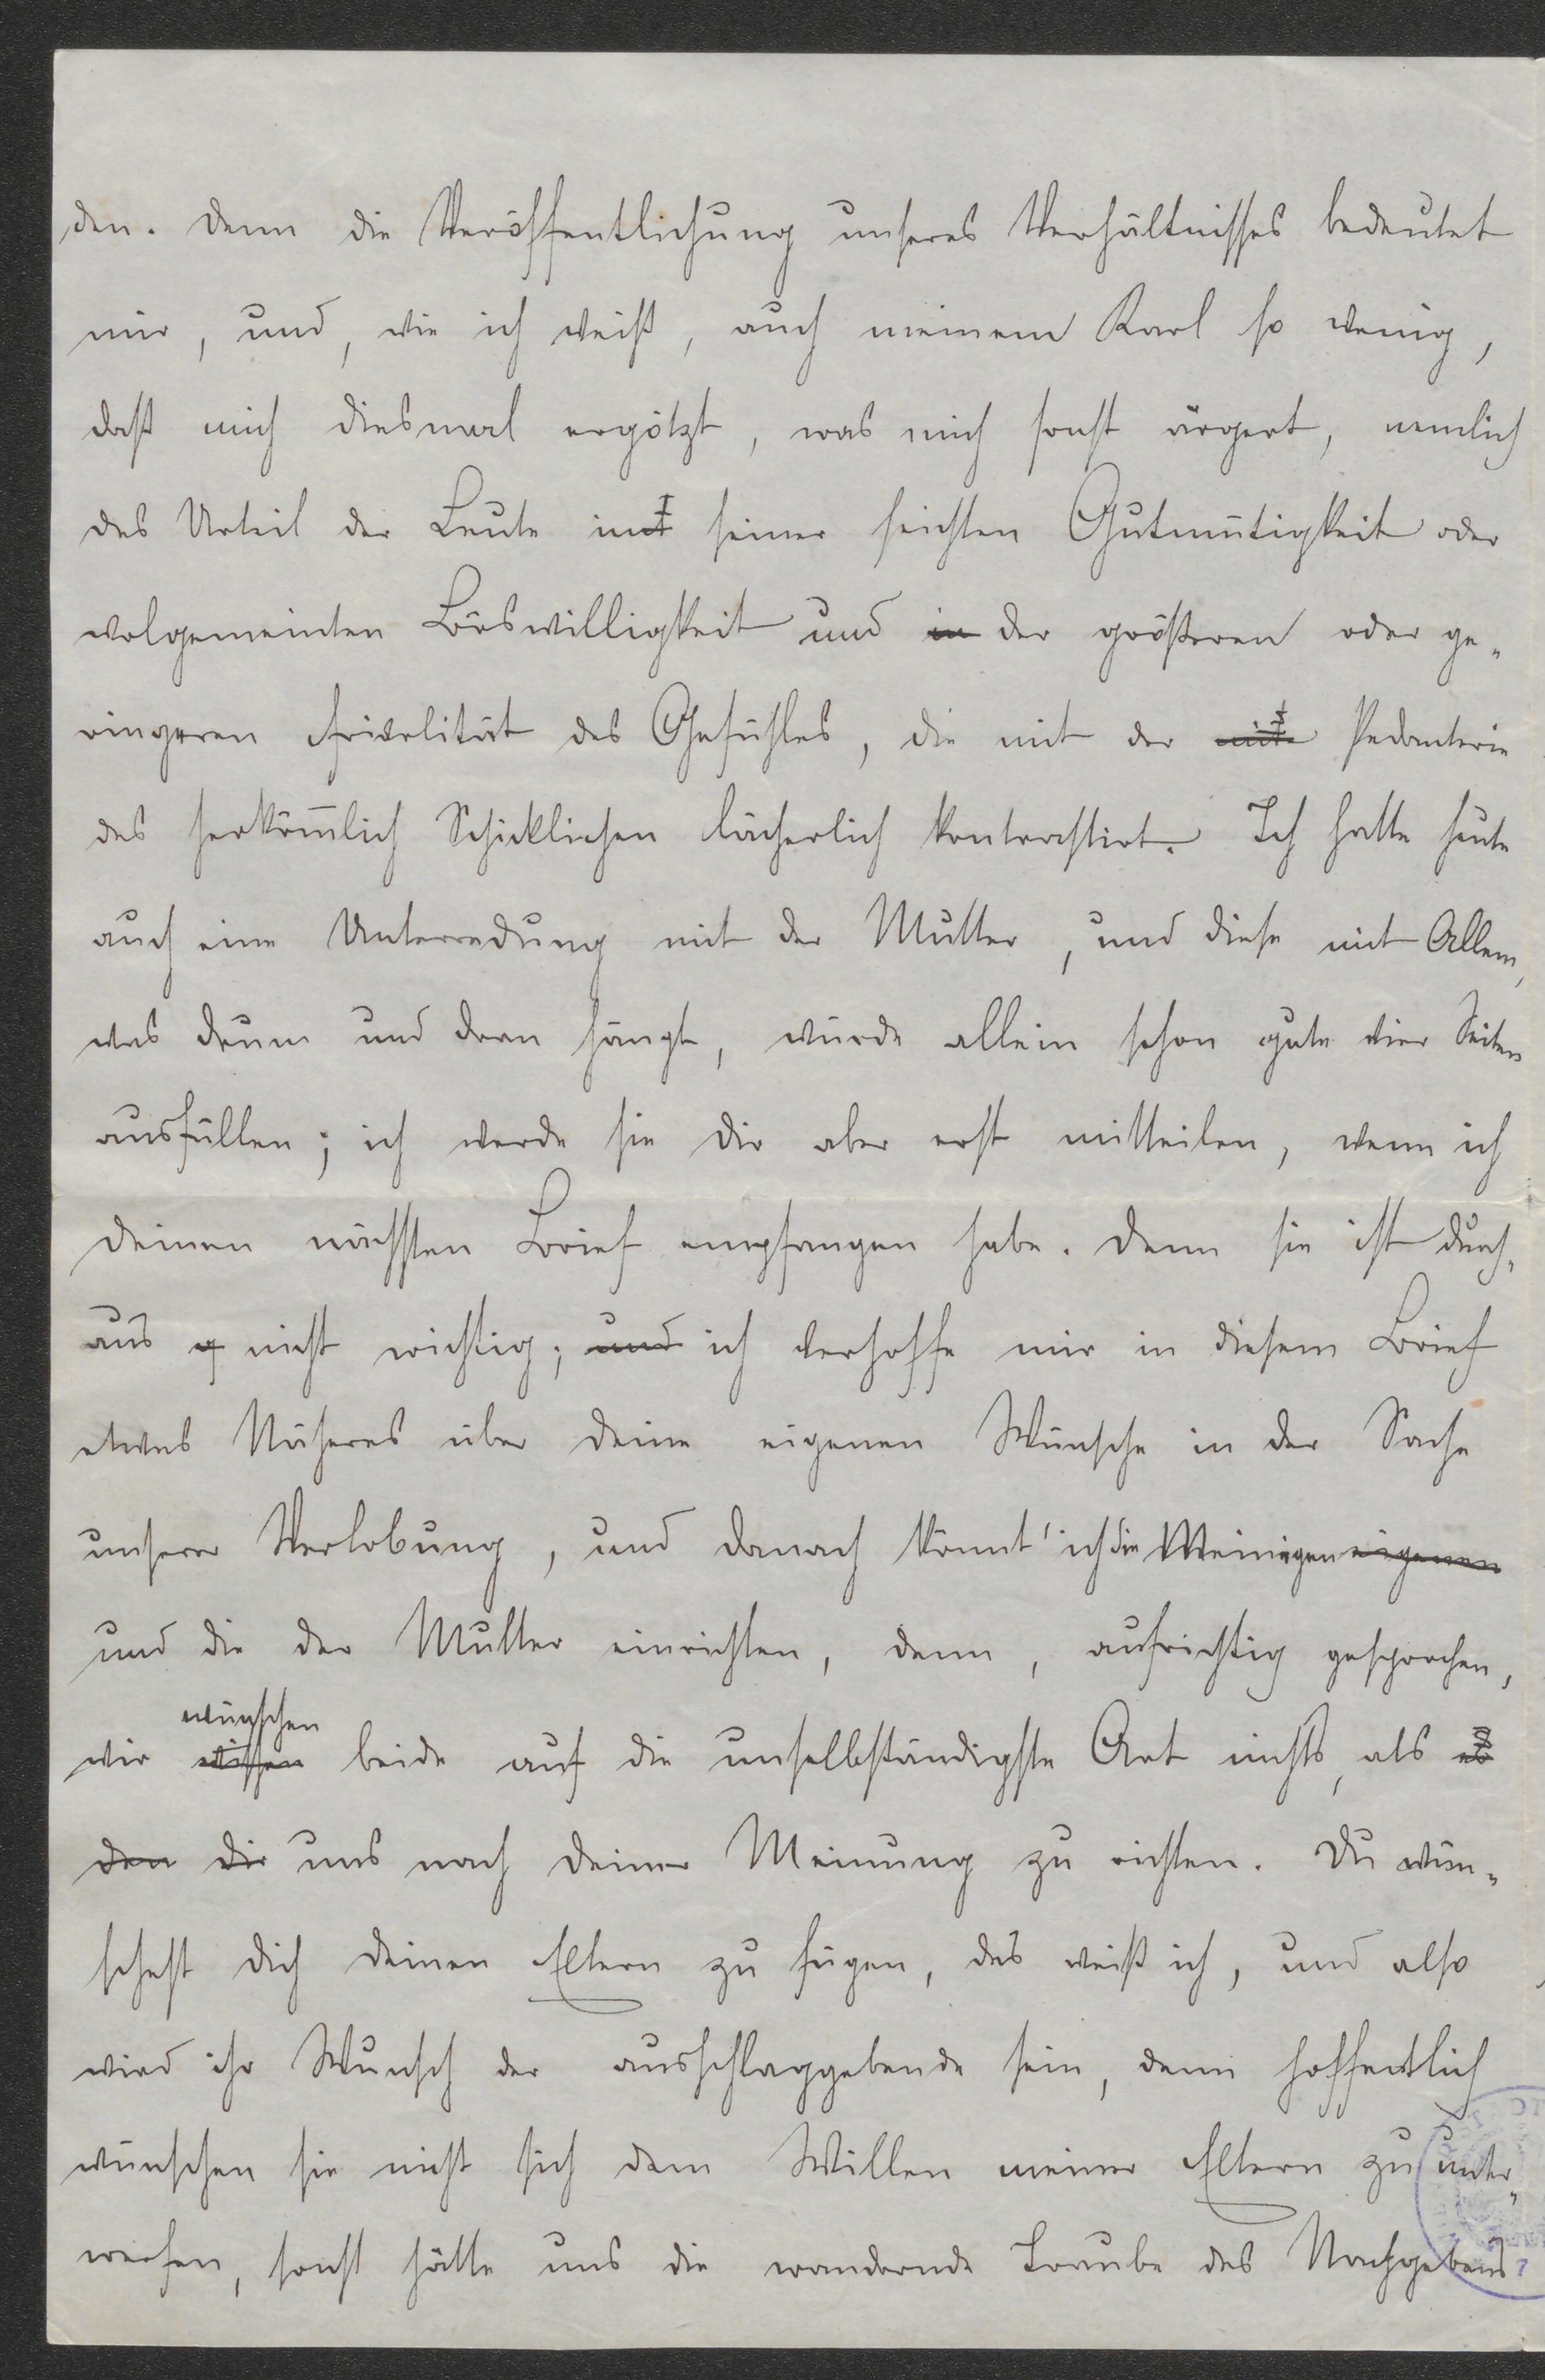 den. Denn die Veröffentlichung unseres Verhältnisses bedeutet
mir, und, wie ich weiß, auch meinem Karl so wenig,
daß mich diesmal ergötzt, was mich sonst ärgert, nemlich
das Urteil der Leute in seiner seichten Gutmütigkeit oder
wolgemeinten Böswilligkeit und in der größeren oder ge„
ringeren Frivolität des Gefühles, die mit der Pedanterie
des herkom̄lich Schicklichen lächerlich kontrastirt. Ich hatte heute
auch eine Unterredung mit der Mutter, und diese mit Allem,
was drum und dran hängt, würde allein schon gute vier Seiten
ausfüllen; ich werde sie dir aber erst mitteilen, wenn ich
deinen nächsten Brief empfangen habe. Denn sie ist durch„
aus g nicht wichtig; und ich verhoffe mir in diesem Brief
etwas Näheres über deine eigenen Wünsche in der Sache
unserer Verlobung, und danach könnt' ich die Meinigen eigenen
und die der Mutter einrichten, denn, aufrichtig gesprochen,
wünschen
wir wissen beide auf die unselbständigste Art nichts, als es
den dir uns nach deiner Meinung zu richten. Du wün„
schest dich deinen Eltern zu fügen, das weiß ich, und also
wird ihr Wunsch der ausschlaggebende sein, denn hoffentlich
wünschen sie nicht sich dem Willen meiner Eltern zu unter„
werfen, sonst hätte uns die wandernde Traube des Nachgebens